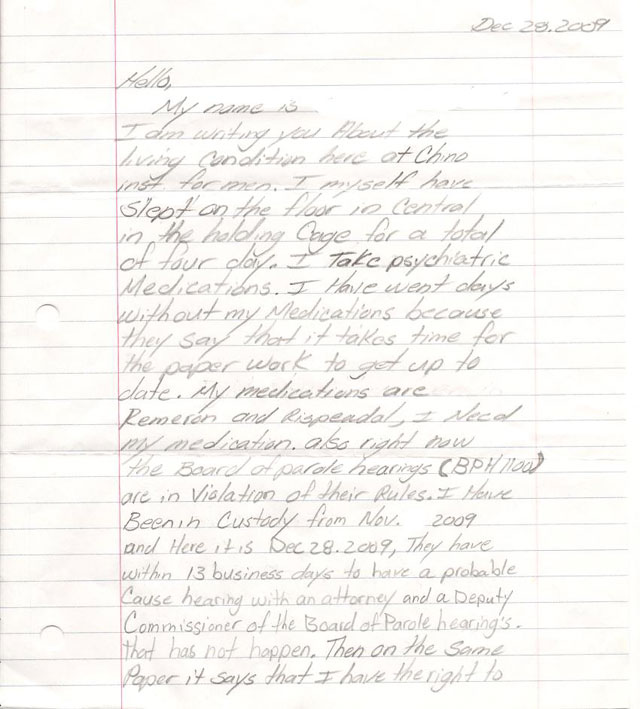 Dec 28.2009
Hello,
My name is
I am writing you About the
living Condition here at Chino
inst. for men. I myself have
slept on the floor in Central
in the holding Cage for a total
of four day. I Take psychiatric
Medications. I Have went days
without my Medications because
they say that it takes time for
the paper work to get up to
date. My medications are
Remeron and Rispeadal, I Need
my medication. also right now
the Board of parole hearings (BPH 1100)
are in Violation of their Rules. I Have
Been in Custody from Nov. 2009
and Here it is Dec 28.2009, They have
within 13 business days to have a probable
Cause hearing with an attorney and a Deputy
Commissioner of the Board of Parole hearing's.
that has not happen. Then on the Same
Paper it says that I have the right to